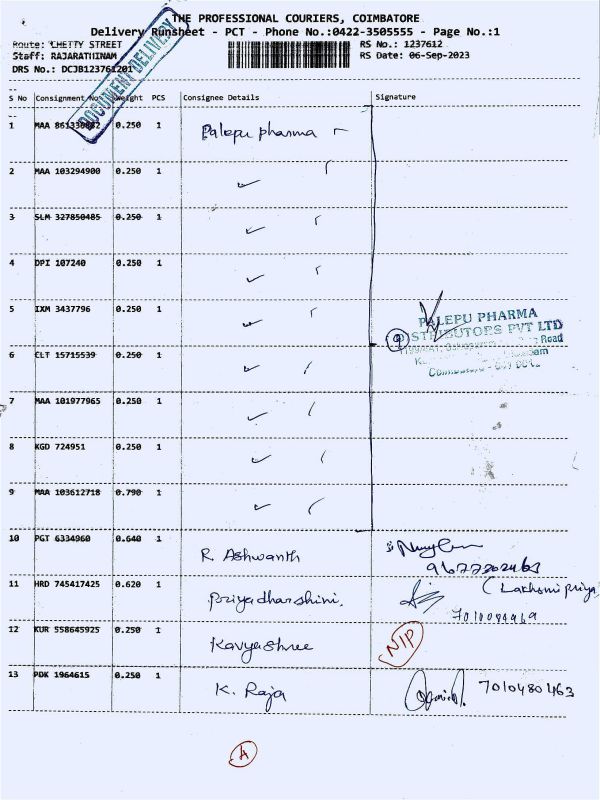 THE PROFESSIONAL COURIERS, COIMBATORE
Delivery Runsheet - PCT - Phone No.:0422-3505555 - Page No.:1
Route: CHETTY STREET RS No.: 1237612
Staff: RAJARATHINAM RS Date: 06-Sep-2023
DRS No.: DCJB123761201
DOCUMENT DELIVERY
S No Consignment No. Weight PCS Consignee Details Signature
1 MAA 0.250 1 Palepu pharma
2 MAA 103294900 0.250 1
3 SLM 327850485 0.250 1
4 DPI 107240 0.250 1
5 IXM 3437796 0.250 1
PALEPU PHARMA
DISTRIBUTORS PVT LTD
Road
9
6 CLT 15715539 0.250 1
Coimbatore
7 MAA 101977965 0.250 1
8 KGD 724951 0.250 1
9 MAA 103612718 0.790 1
10 PGT 6334960 0.640 1 R. Ashwanth
11 HRD 745417425 0.620 1 Priyadharshini. (Lakshmi priya)
12 KUR 558645925 0.250 1 Kavyashree NIP
13 PDK 1964615 0.250 1 K. Raja 7010480463
A